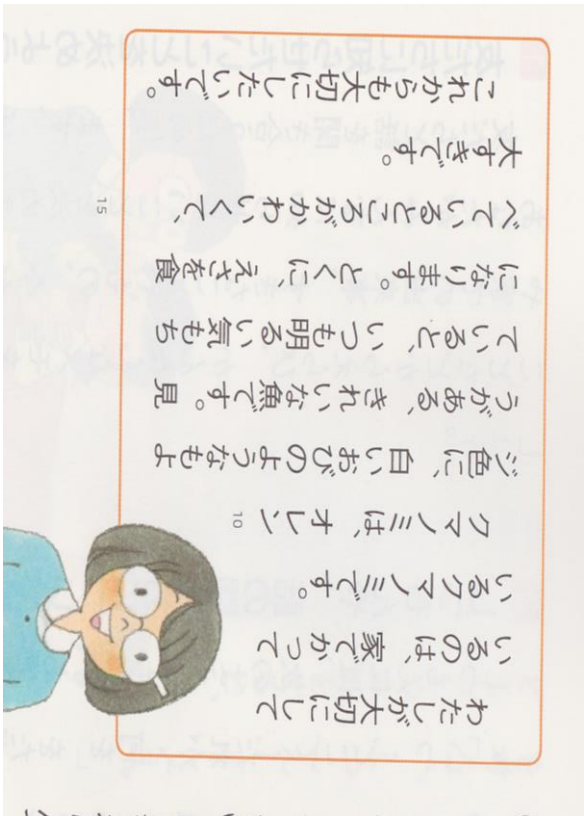 わたしが大切にして
いるのは、家でかって
いるクマノミです。
クマノミは、オレン
10
ジ色に、白いおびのようなもよ
うがある、きれいな魚です。見
ていると、いつも明るい気もち
になります。とくに、えさを食
べているところがかわいくて、
15
大すきです。
これからも大切にしたいです。